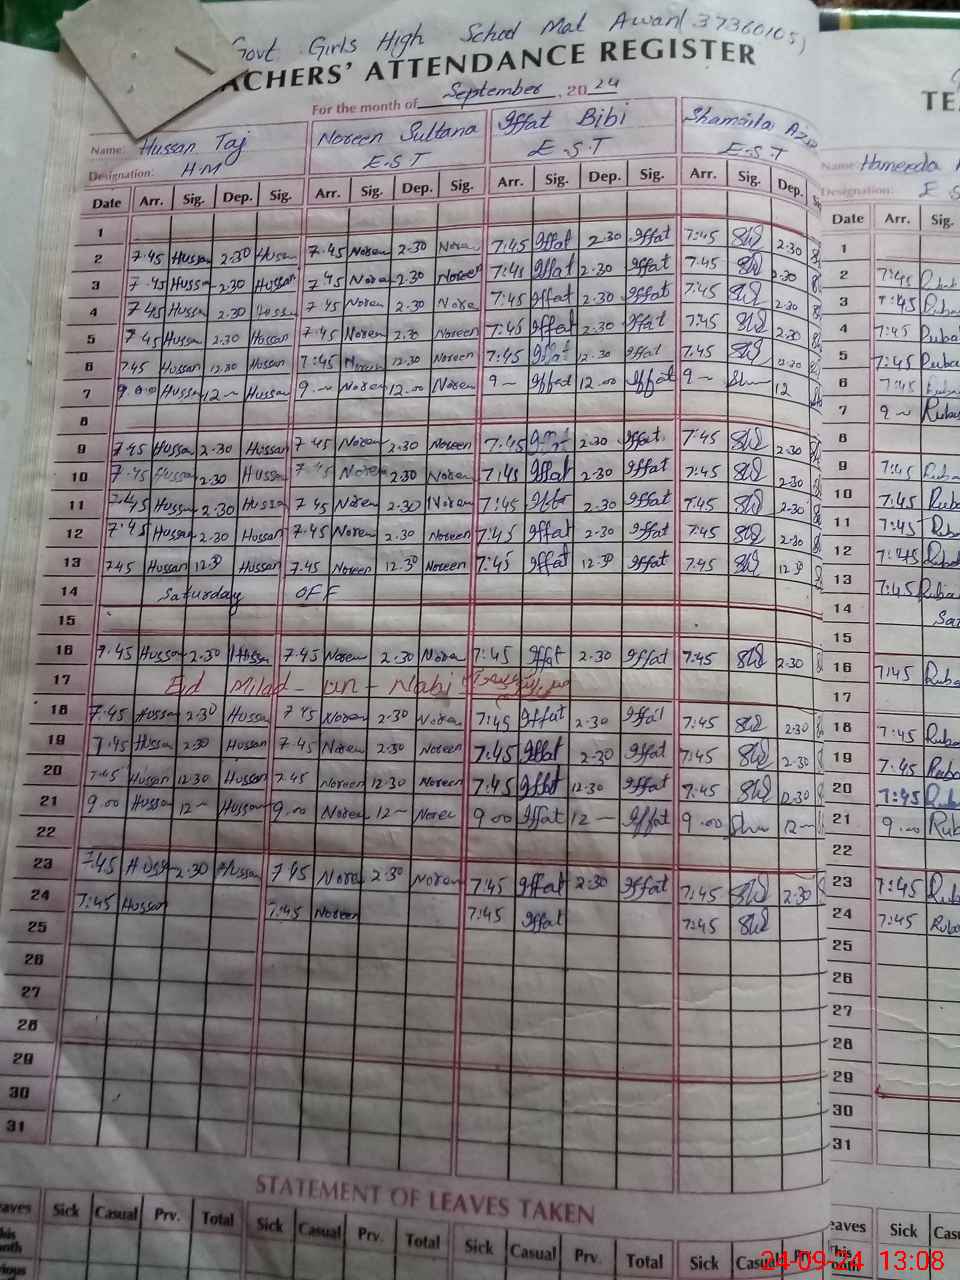 Govt Girls High School Mat Awan (37360105)
ACHERS' ATTENDANCE REGISTER
For the month of September 2024
Name: Hussan Taj Noreen Sultana Iffat Bibi Shamaila
Designation: H.M E.S.T E.S.T E.S.T
Date Arr. Sig. Dep. Sig. Arr. Sig. Dep. Sig. Arr. Sig. Dep. Sig. Arr. Sig. Dep.
1
2 7.45 Hussan 2.30 Hussan 7.45 Noreen 2.30 Noreen 7:45 Iffat 2.30 Iffat 7:45 2.30
3 7.45 Hussan 2.30 Hussan 7.45 Noreen 2.30 Noreen 7:45 Iffat 2.30 Iffat 7:45 2.30
4 7.45 Hussan 2.30 Hussan 7.45 Noreen 2.30 Noreen 7:45 Iffat 2.30 Iffat 7:45 2.30
5 7.45 Hussan 2.30 Hussan 7.45 Noreen 2.30 Noreen 7:45 Iffat 2.30 Iffat 7:45 2.30
6 7.45 Hussan 12.30 Hussan 7:45 Noreen 12.30 Noreen 7:45 Iffat 12.30 Iffat 7:45 12.30
7 9.00 Hussan 12 Hussan 9 Noreen 12.00 Noreen 9 Iffat 12.00 Iffat 9 12
8
9 7.45 Hussan 2.30 Hussan 7.45 Noreen 2.30 Noreen 7:45 Iffat 2.30 Iffat 7:45 2.30
10 7.45 Hussan 2.30 Hussan 7.45 Noreen 2.30 Noreen 7:45 Iffat 2.30 Iffat 7:45 2.30
11 7.45 Hussan 2.30 Hussan 7.45 Noreen 2.30 Noreen 7:45 Iffat 2.30 Iffat 7:45 2.30
12 7.45 Hussan 2.30 Hussan 7.45 Noreen 2.30 Noreen 7:45 Iffat 2.30 Iffat 7:45 2.30
13 7.45 Hussan 12.30 Hussan 7.45 Noreen 12.30 Noreen 7:45 Iffat 12.30 Iffat 7:45 12.30
14 Saturday OFF
15
16 7.45 Hussan 2.30 Hussan 7.45 Noreen 2.30 Noreen 7:45 Iffat 2.30 Iffat 7:45 2.30
17 Eid Milad-un-Nabi
18 7.45 Hussan 2.30 Hussan 7.45 Noreen 2.30 Noreen 7:45 Iffat 2.30 Iffat 7:45 2.30
19 7.45 Hussan 2.30 Hussan 7.45 Noreen 2.30 Noreen 7:45 Iffat 2.30 Iffat 7:45 2.30
20 7.45 Hussan 12.30 Hussan 7.45 Noreen 12.30 Noreen 7:45 Iffat 12.30 Iffat 7:45 12.30
21 9.00 Hussan 12 Hussan 9.00 Noreen 12 Noreen 9.00 Iffat 12 Iffat 9.00 12
22
23 7.45 Hussan 2.30 Hussan 7.45 Noreen 2.30 Noreen 7:45 Iffat 2.30 Iffat 7:45 2.30
24 7:45 Hussan 7:45 Noreen 7:45 Iffat 7:45
25
26
27
28
29
30
31
STATEMENT OF LEAVES TAKEN
eaves Sick Casual Prv. Total Sick Casual Prv. Total Sick Casual Prv. Total Sick Casual Prv.
TE
Name: Hameeda
Designation: E
Date Arr. Sig.
1
2 7:45 Ruba
3 7:45 Ruba
4 7:45 Ruba
5 7:45 Ruba
6 7:45 Ruba
7 9 Ruba
8
9 7:45 Ruba
10 7:45 Ruba
11 7:45 Ruba
12 7:45 Ruba
13 7:45 Ruba
14 Sat
15
16 7:45 Ruba
17
18 7:45 Ruba
19 7:45 Ruba
20 7:45 Ruba
21 9.00 Rub
22
23 7:45 Ruba
24 7:45 Ruba
25
26
27
28
29
30
31
eaves Sick Cas
This
24-09-24 13:08